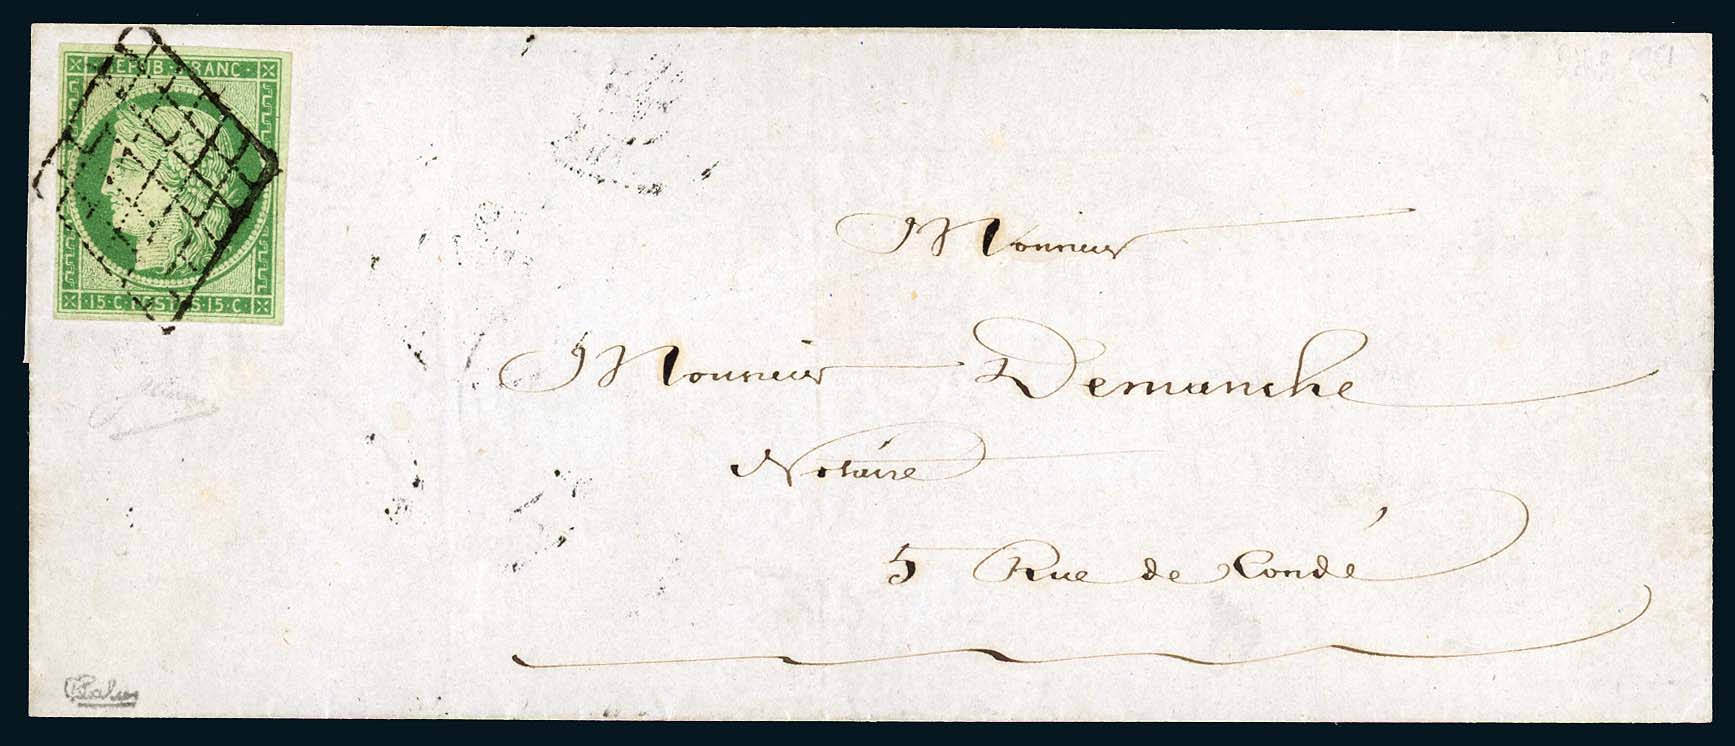 REPUB FRANC
15·C·POSTES·15·C
Monsieur
Monsieur Demanche
Notaire
5 Rue de Condé
Calves